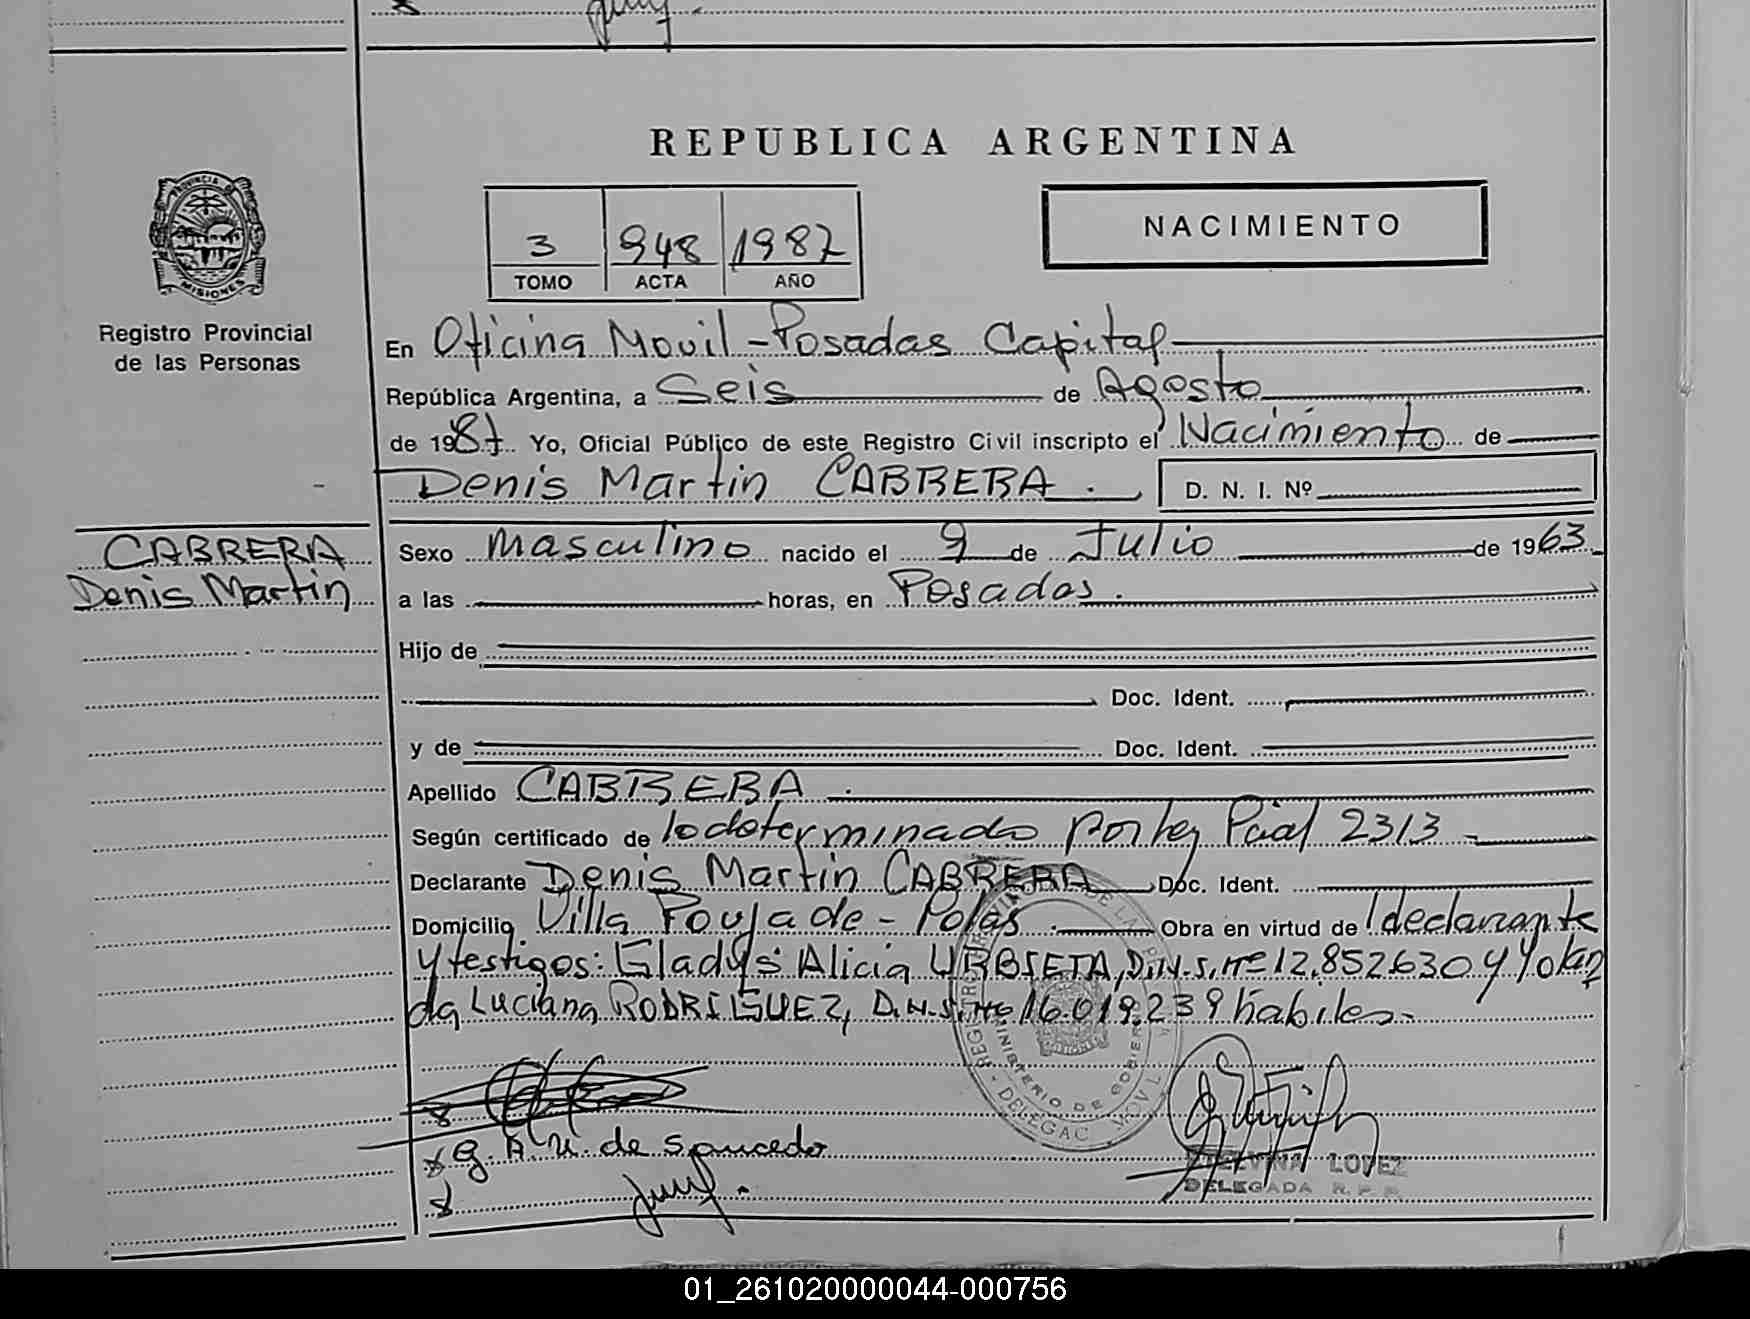 REPUBLICA ARGENTINA
3 948 1987
TOMO ACTA AÑO
NACIMIENTO
PROVINCIA DE MISIONES
Registro Provincial
de las Personas
En Oficina Movil - Posadas Capital
República Argentina, a Seis de Agosto
de 1987 Yo, Oficial Público de este Registro Civil inscripto el Nacimiento de
Denis Martin CABRERA. D. N. I. Nº
CABRERA
Denis Martin
Sexo Masculino nacido el 9 de Julio de 1963
a las horas, en Posadas.
Hijo de
Doc. Ident.
y de Doc. Ident.
Apellido CABRERA.
Según certificado de lo determinado por ley Pcial 2313
Declarante Denis Martin CABRERA Doc. Ident.
Domicilio Villa Poujade - Pdas. Obra en virtud de l declarante
y testigos: Gladys Alicia URBIETA, D.N.I. nº 12.852.630 y Yolan
da Luciana RODRIGUEZ, D.N.I. nº 16.019.239 hábiles.-
MINISTERIO DE GOBIERNO
G. A. U. de Saucedo
LOPEZ
DELEGADA R. P. P.
01_261020000044-000756